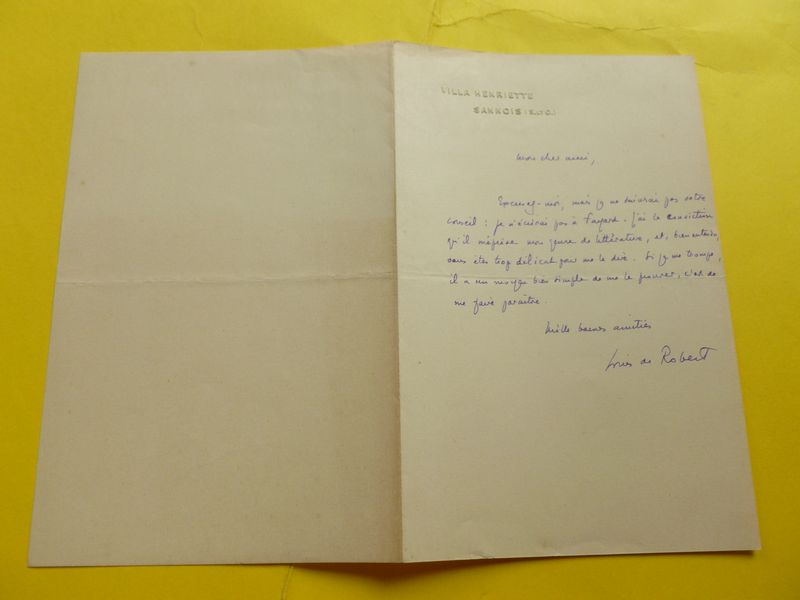 VILLA HENRIETTE
SANNOIS (S.-ET-O.)
Mon cher ami,
Excusez-moi, mais je ne suivrai pas votre
conseil : je n'écrirai pas à Fayard. J'ai la conviction
qu'il méprise mon genre de littérature, et, bien entendu,
vous êtes trop délicat pour me le dire. Si je me trompe,
il a un moyen bien simple de me le prouver, c'est de
me faire paraître.
Mille bonnes amitiés
Louis de Robert